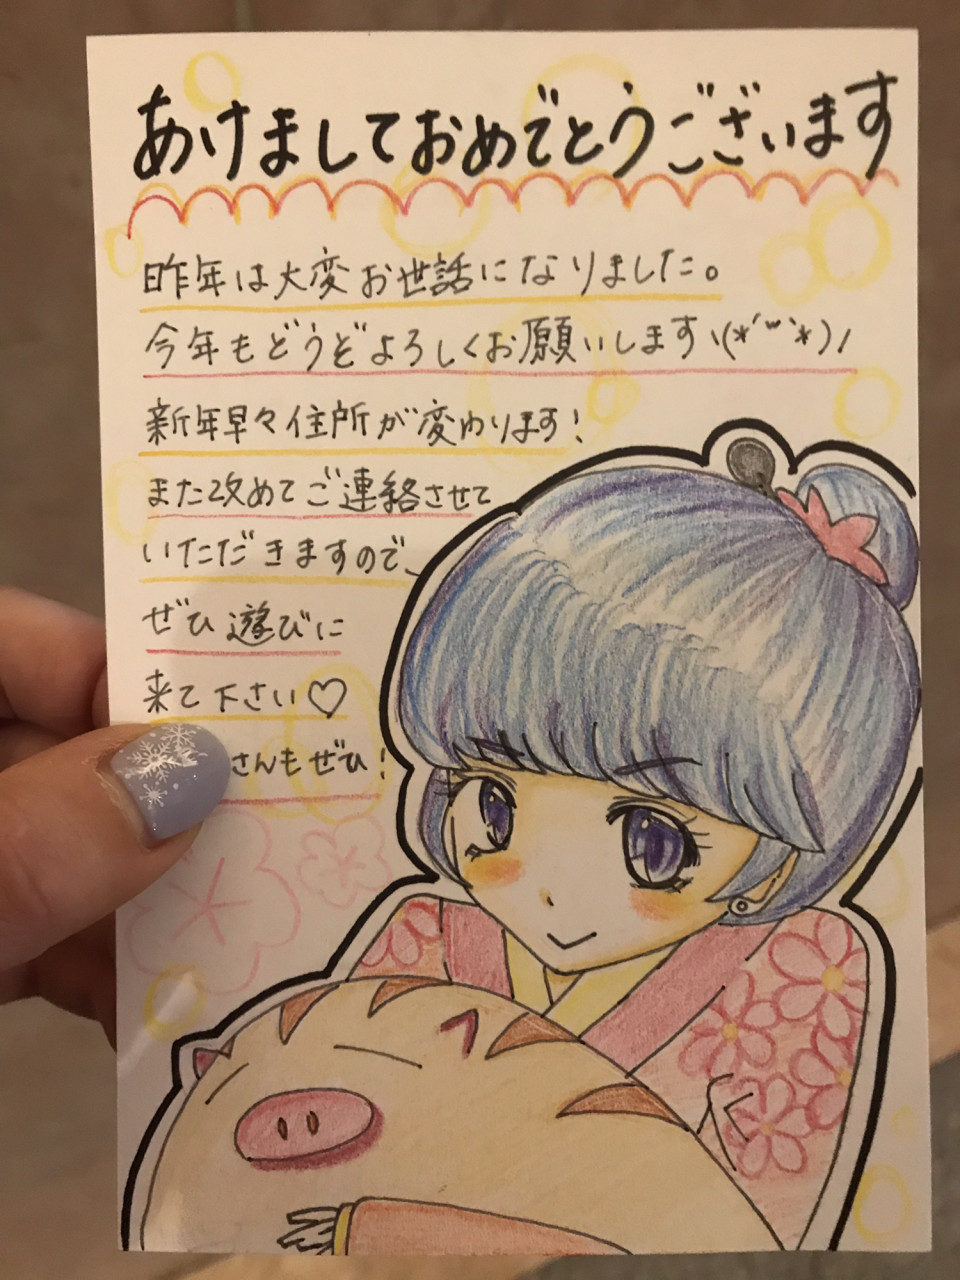 あけましておめでとうございます
昨年は大変お世話になりました。
今年もどうぞよろしくお願いしますヽ(*´ω`*)ノ
新年早々住所が変わります!
また改めてご連絡させて
いただきますので、
ぜひ遊びに
来て下さい♡
さんもぜひ!